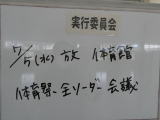 実行委員会
7/5(水) 放 体育館
体育祭 全リーダー会議